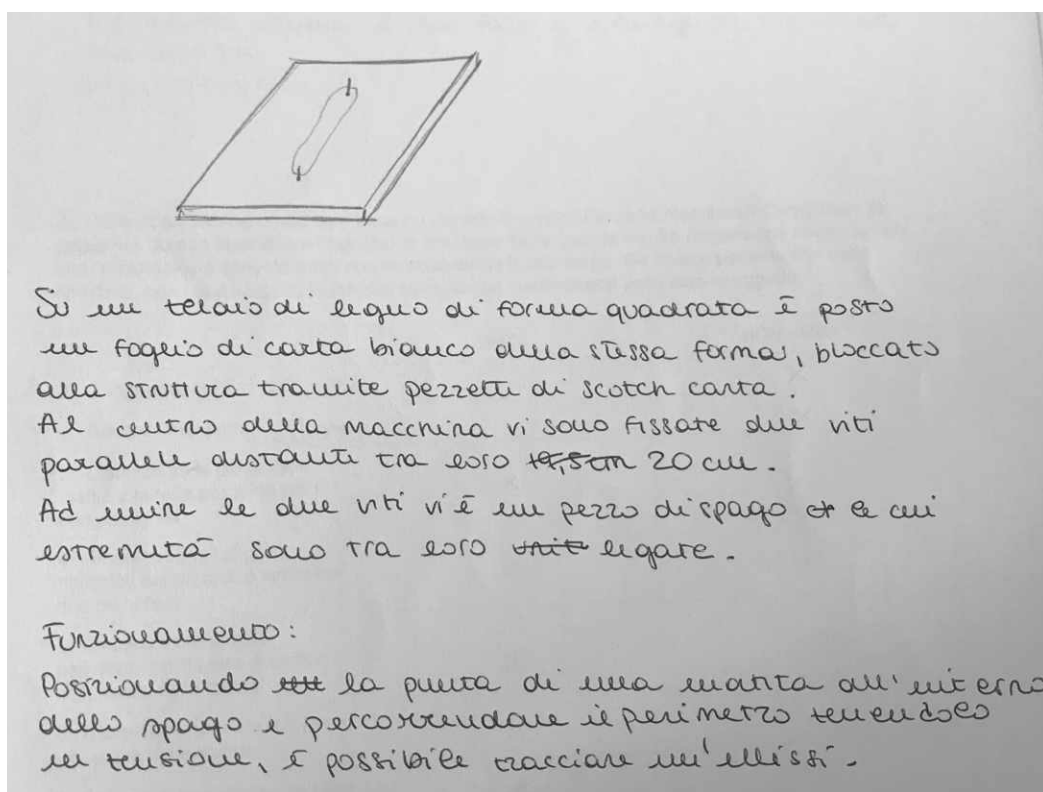 Su un telaio di legno di forma quadrata è posto
un foglio di carta bianco della stessa forma, bloccato
alla struttura tramite pezzetti di scotch carta.
Al centro della macchina vi sono fissate due viti
parallele distanti tra loro 19,5 cm 20 cm.
Ad unire le due viti vi è un pezzo di spago le cui
estremità sono tra loro unit legate.
Funzionamento:
Posizionando la punta di una matita all'interno
dello spago e percorrendone il perimetro tenendolo
in tensione, è possibile tracciare un'ellissi.